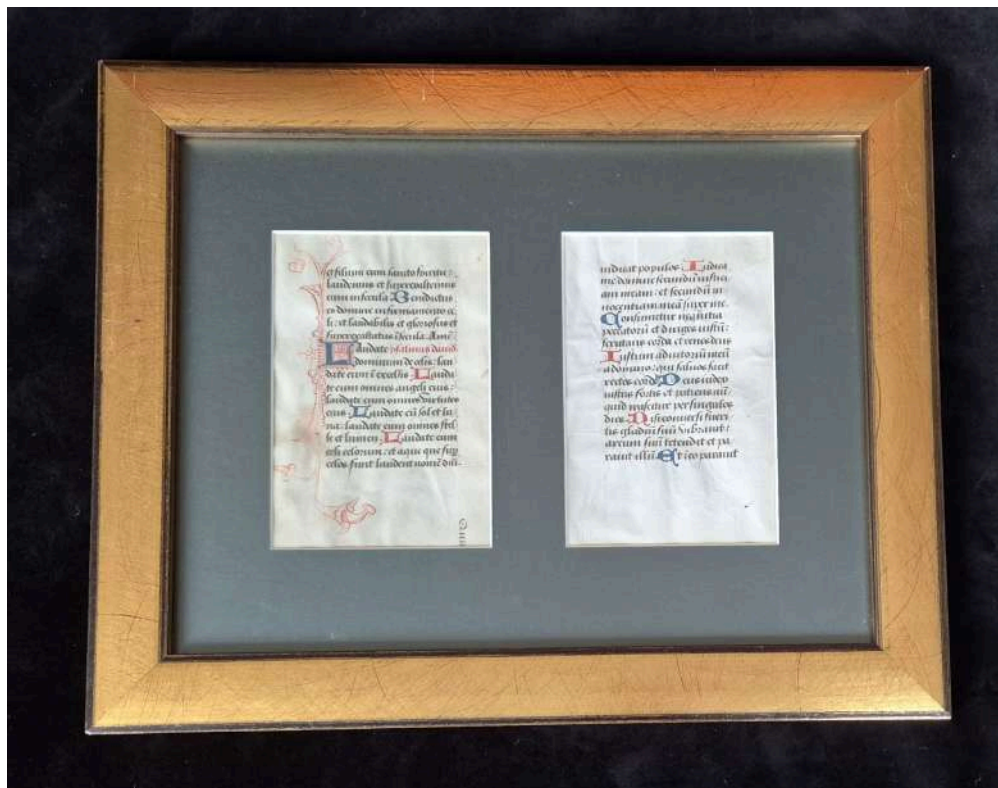 et filium cum sancto spiritu:
laudemus et superexaltemus
eum in secula Benedictus
es domine in firmamento ce
li: et laudabilis et gloriosus et
superexaltatus ī secula. Amē
Laudate psalmus david
dominum de celis: lau
date eum ī excelsis Lauda
te eum omnes angeli eius:
laudate eum omnes virtutes
eius Laudate eū sol et lu
na: laudate eum omnes stel
le et lumen Laudate eum
celi celorum: et aque que sup
celos sunt laudent nomē dn̄i.
iudicat populos Iudica
me domine secundū iustici
am meam: et secundū in
nocentiam meā super me
Consumetur nequitia
peccatorū et diriges iustū:
scrutans corda et renes deus
Iustum adiutoriū meū
a domino: qui saluos facit
rectos corde Deus iudex
iustus fortis et patiens: nū
quid irascitur per singulos
dies Nisi conuersi fueri
tis gladiū suū vibrauit:
arcum suū tetendit et pa
rauit illū Et ī eo parauit